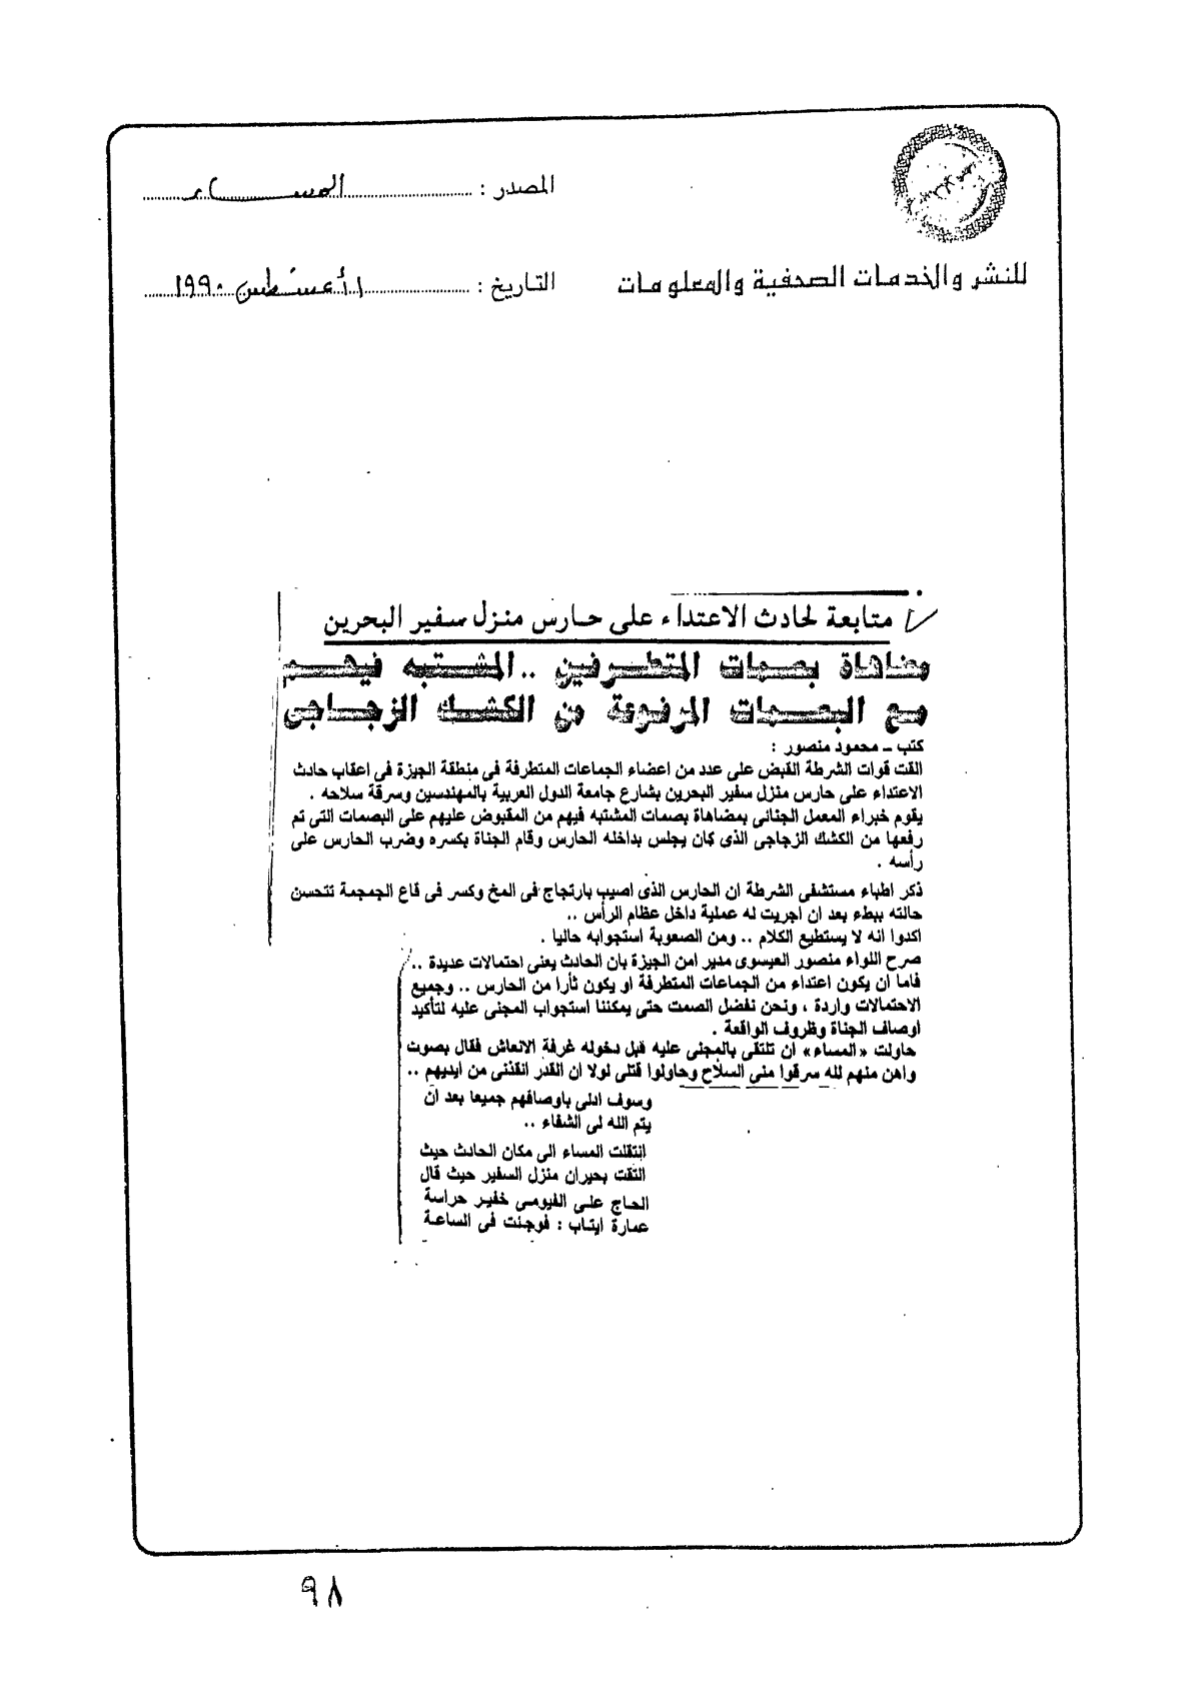 المصدر : المساء
للنشر والخدمات الصحفية والمعلومات
التاريخ : ١ أغسطس ١٩٩٠
متابعة لحادث الاعتداء على حارس منزل سفير البحرين
مضاهاة بصمات المتطرفين .. المشتبه فيهم
مع البصمات المرفوعة من الكشك الزجاجى
كتب ــ محمود منصور :
القت قوات الشرطة القبض على عدد من اعضاء الجماعات المتطرفة فى منطقة الجيزة فى اعقاب حادث
الاعتداء على حارس منزل سفير البحرين بشارع جامعة الدول العربية بالمهندسين وسرقة سلاحه .
يقوم خبراء المعمل الجنائى بمضاهاة بصمات المشتبه فيهم من المقبوض عليهم على البصمات التى تم
رفعها من الكشك الزجاجى الذى كان يجلس بداخله الحارس وقام الجناة بكسره وضرب الحارس على
رأسه .
ذكر اطباء مستشفى الشرطة ان الحارس الذى اصيب بارتجاج فى المخ وكسر فى قاع الجمجمة تتحسن
حالته ببطء بعد ان اجريت له عملية داخل عظام الرأس ..
اكدوا انه لا يستطيع الكلام .. ومن الصعوبة استجوابه حاليا .
صرح اللواء منصور العيسوى مدير امن الجيزة بان الحادث يعنى احتمالات عديدة ..
فاما ان يكون اعتداء من الجماعات المتطرفة او يكون ثأرا من الحارس .. وجميع
الاحتمالات واردة ، ونحن نفضل الصمت حتى يمكننا استجواب المجنى عليه لتأكيد
اوصاف الجناة وظروف الواقعة .
حاولت «المساء» ان تلتقى بالمجنى عليه قبل دخوله غرفة الانعاش فقال بصوت
واهن منهم لله سرقوا منى السلاح وحاولوا قتلى لولا ان القدر انقذنى من ايديهم ..
وسوف ادلى باوصافهم جميعا بعد ان
يتم الله لى الشفاء ..
انتقلت المساء الى مكان الحادث حيث
التقت بجيران منزل السفير حيث قال
الحاج على الفيومى خفير حراسة
عمارة ايتاب : فوجئت فى الساعة
٩٨